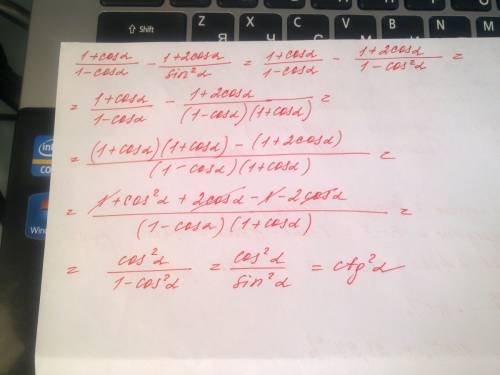 Shift Я Ч С М И Т Ь Б Ю
(1+cosα)/(1-cosα) - (1+2cosα)/(sin²α) = (1+cosα)/(1-cosα) - (1+2cosα)/(1-cos²α) =
= (1+cosα)/(1-cosα) - (1+2cosα)/((1-cosα)(1+cosα)) =
= ((1+cosα)(1+cosα) - (1+2cosα))/((1-cosα)(1+cosα)) =
= (1+cos²α + 2cosα - 1 - 2cosα)/((1-cosα)(1+cosα)) =
= cos²α/(1-cos²α) = cos²α/sin²α = ctg²α
intel